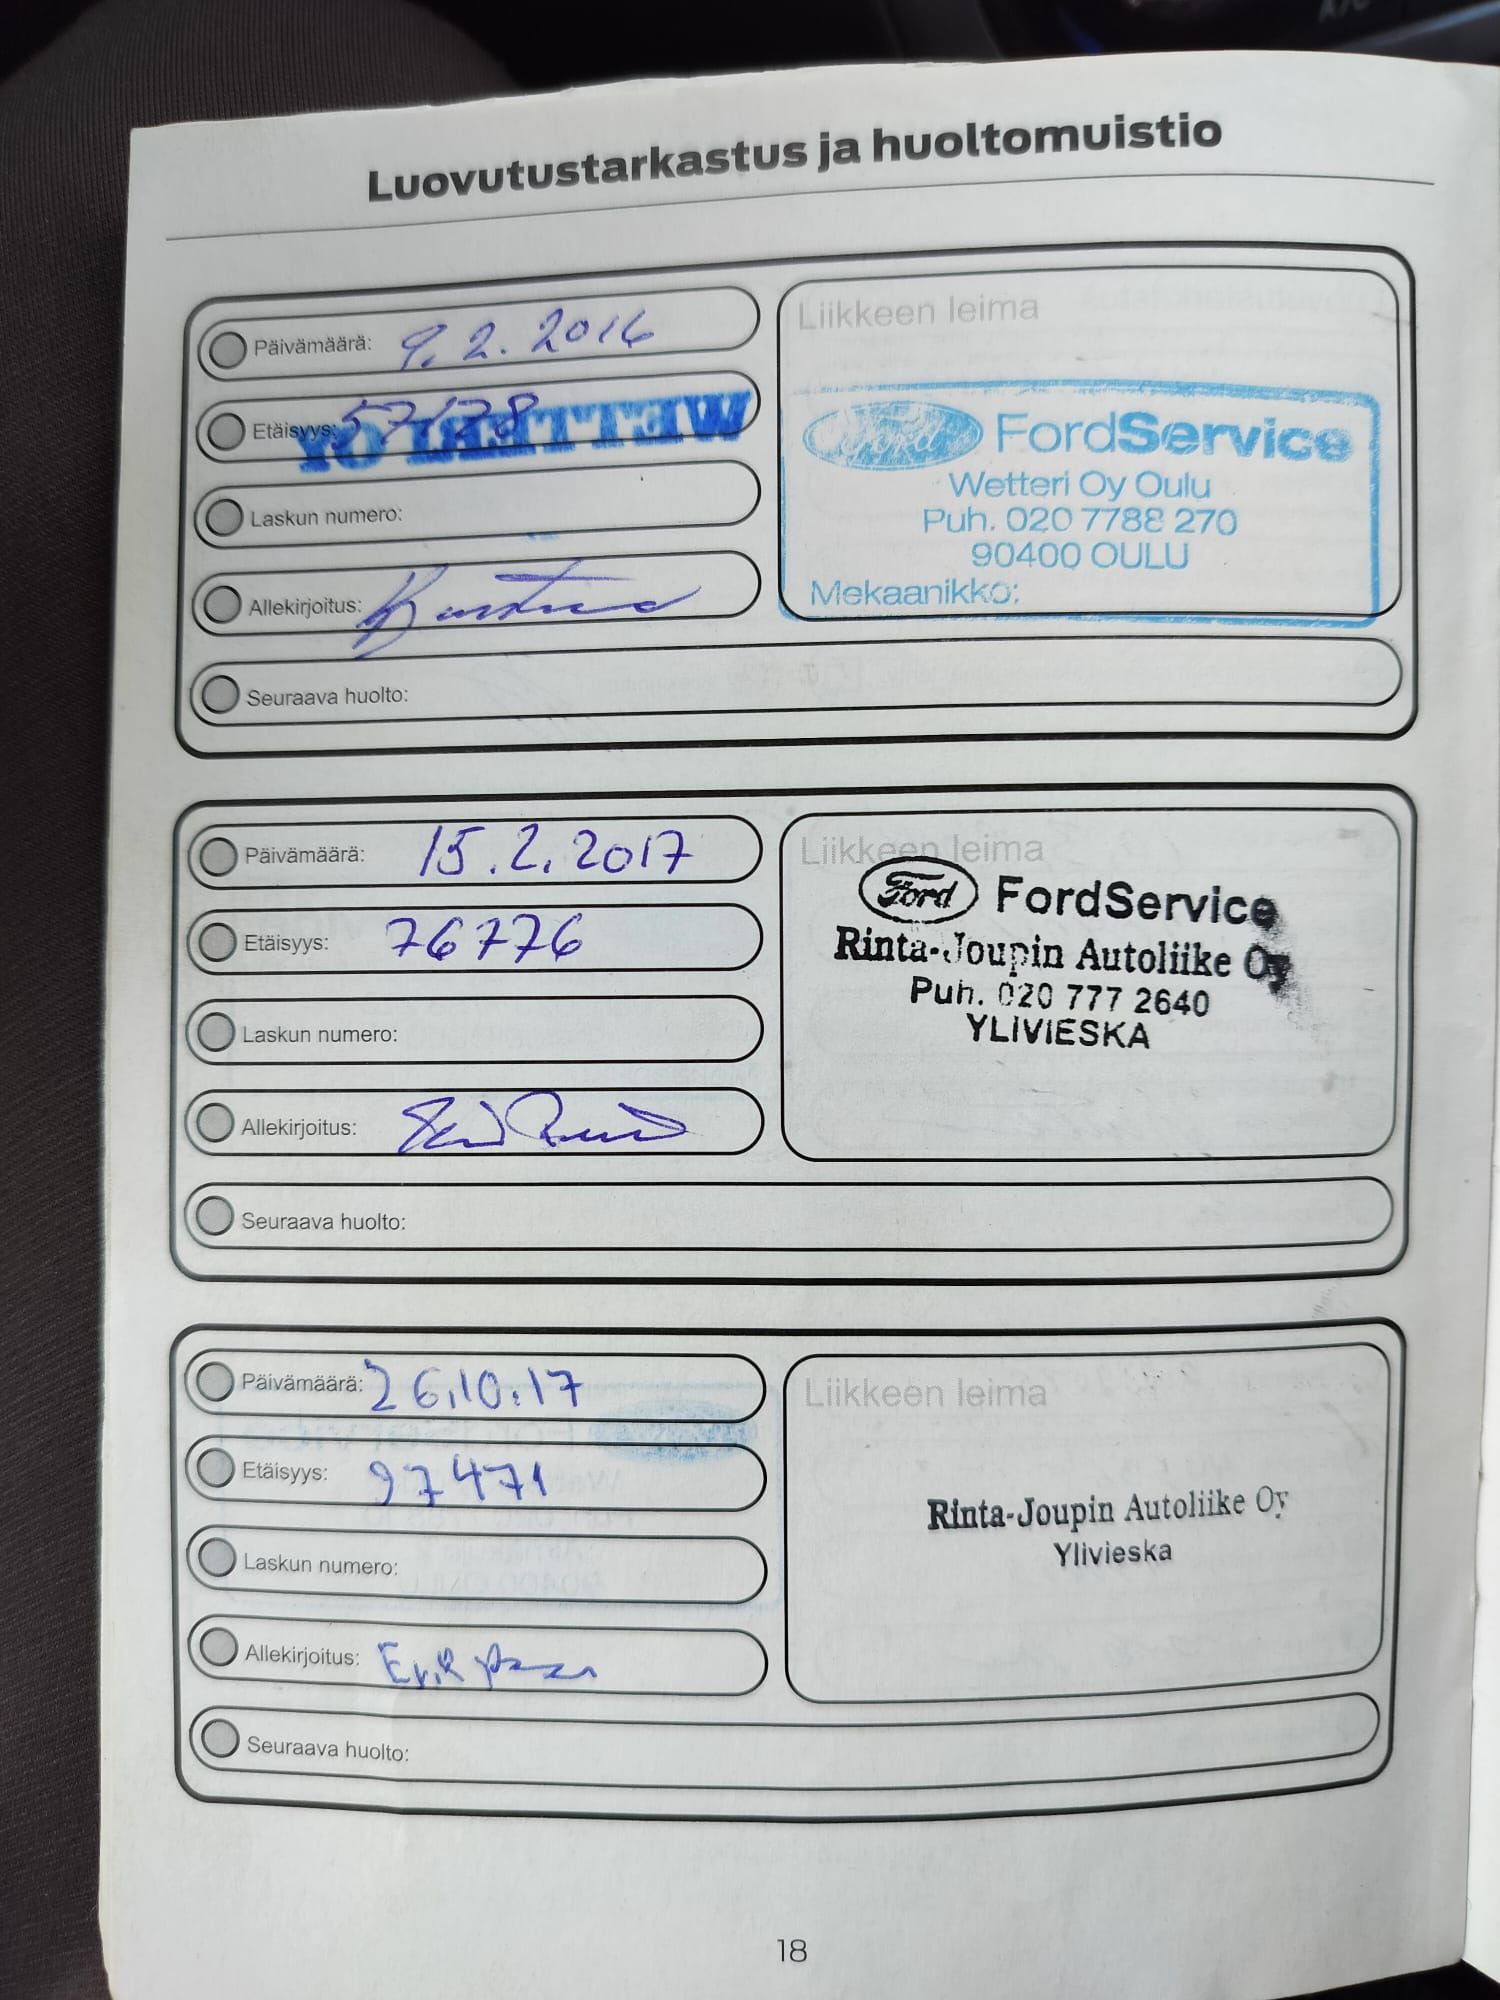 Luovutustarkastus ja huoltomuistio
Päivämäärä: 9.2.2016
Etäisyys: 57128
WETTERI OY
Laskun numero:
Allekirjoitus:
Seuraava huolto:
Liikkeen leima
Ford FordService
Wetteri Oy Oulu
Puh. 020 7788 270
90400 OULU
Mekaanikko:
Päivämäärä: 15.2.2017
Etäisyys: 76776
Laskun numero:
Allekirjoitus:
Seuraava huolto:
Liikkeen leima
Ford FordService
Rinta-Joupin Autoliike Oy
Puh. 020 777 2640
YLIVIESKA
Päivämäärä: 26.10.17
Etäisyys: 97471
Laskun numero:
Allekirjoitus:
Seuraava huolto:
Liikkeen leima
Rinta-Joupin Autoliike Oy
Ylivieska
18